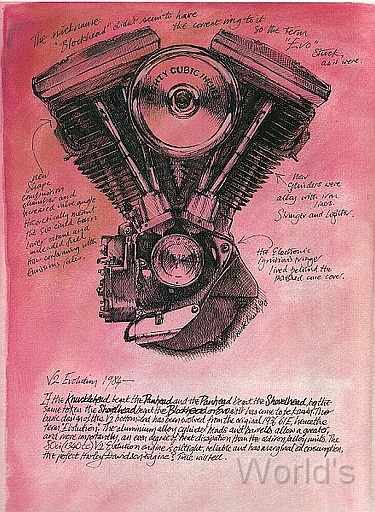 The nickname
"Blockhead" didn't seem to have
the correct ring to it
So the term
"Evo"
Stuck,
as it were.
EIGHTY CUBIC INCHES
new
shape
combustion
chamber and
increased valve angle
theoretically meant
the Evo could burn
lower octane and
unleaded fuel
thus conforming with
emissions rules.
new
cylinders were
alloy with iron
liners.
Stronger and lighter.
the Electronic
ignition trigger
lived behind the
pointed cam cover.
V2 Evolution 1984—
If the Knucklehead beat the Panhead and the Panhead beat the Shovelhead, by the
same token the Shovelhead beat the Blockhead or Evo as it has come to be known. The
basic design of the V2 bottom end has been evolved from the original 1936 61E, hence the
term 'Evolution'. The aluminium alloy cylinder heads and barrels allow a greater,
and more importantly, an even degree of heat dissipation than the old iron/alloy units. The
80ci (1340cc) V2 Evolution engine is oiltight, reliable and has a original oil consumption,
the perfect Harley Davidson engine? Time will tell.
World's